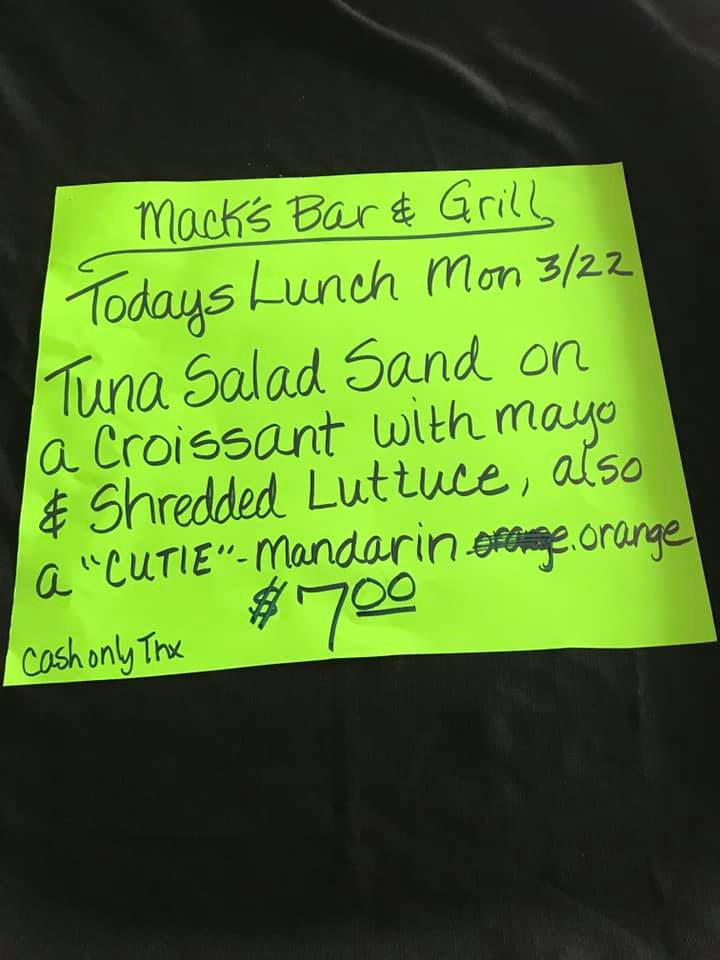 Mack's Bar & Grill
Todays Lunch Mon 3/22
Tuna Salad Sand on
a Croissant with mayo
& Shredded Luttuce, also
a "CUTIE"-Mandarin orange.orange
$7.00
Cash only Tnx